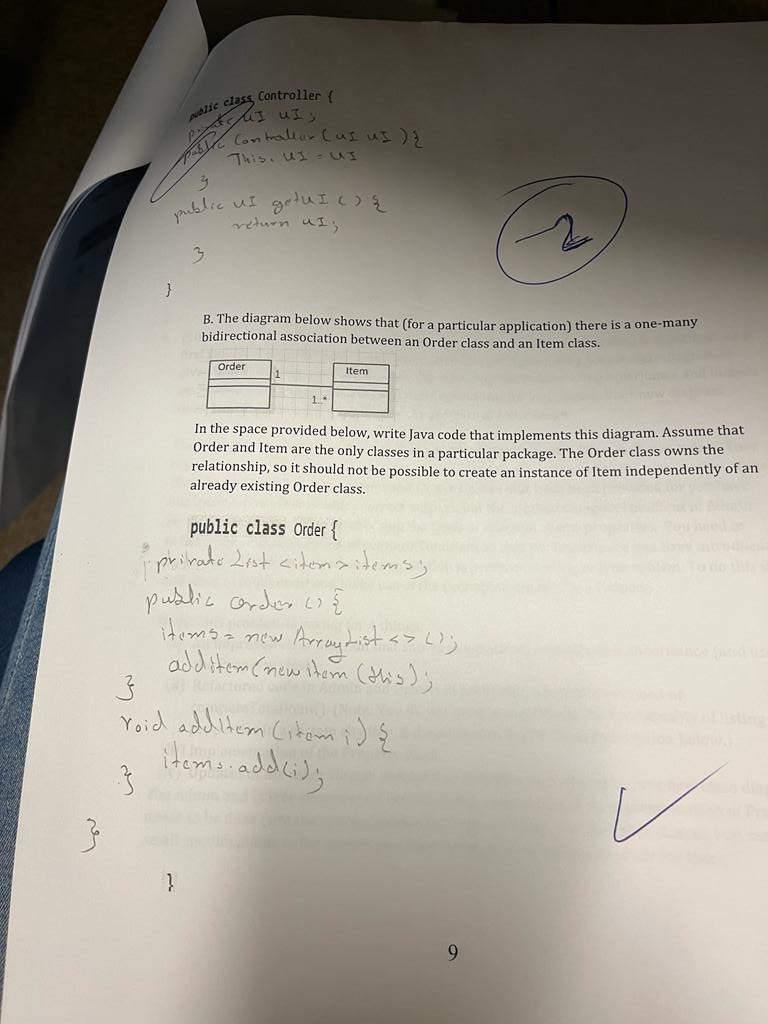 public class Controller {
private UI UI;
public Controller (UI UI) {
This. UI = UI
}
public UI getUI () {
return UI;
}
}
2
B. The diagram below shows that (for a particular application) there is a one-many
bidirectional association between an Order class and an Item class.
Order
1
Item
1..*
In the space provided below, write Java code that implements this diagram. Assume that
Order and Item are the only classes in a particular package. The Order class owns the
relationship, so it should not be possible to create an instance of Item independently of an
already existing Order class.
public class Order {
private List <item> items;
public order () {
items = new ArrayList <> ();
additem(new item (this);
}
void addItem (item i) {
items.add(i);
}
}
}
9